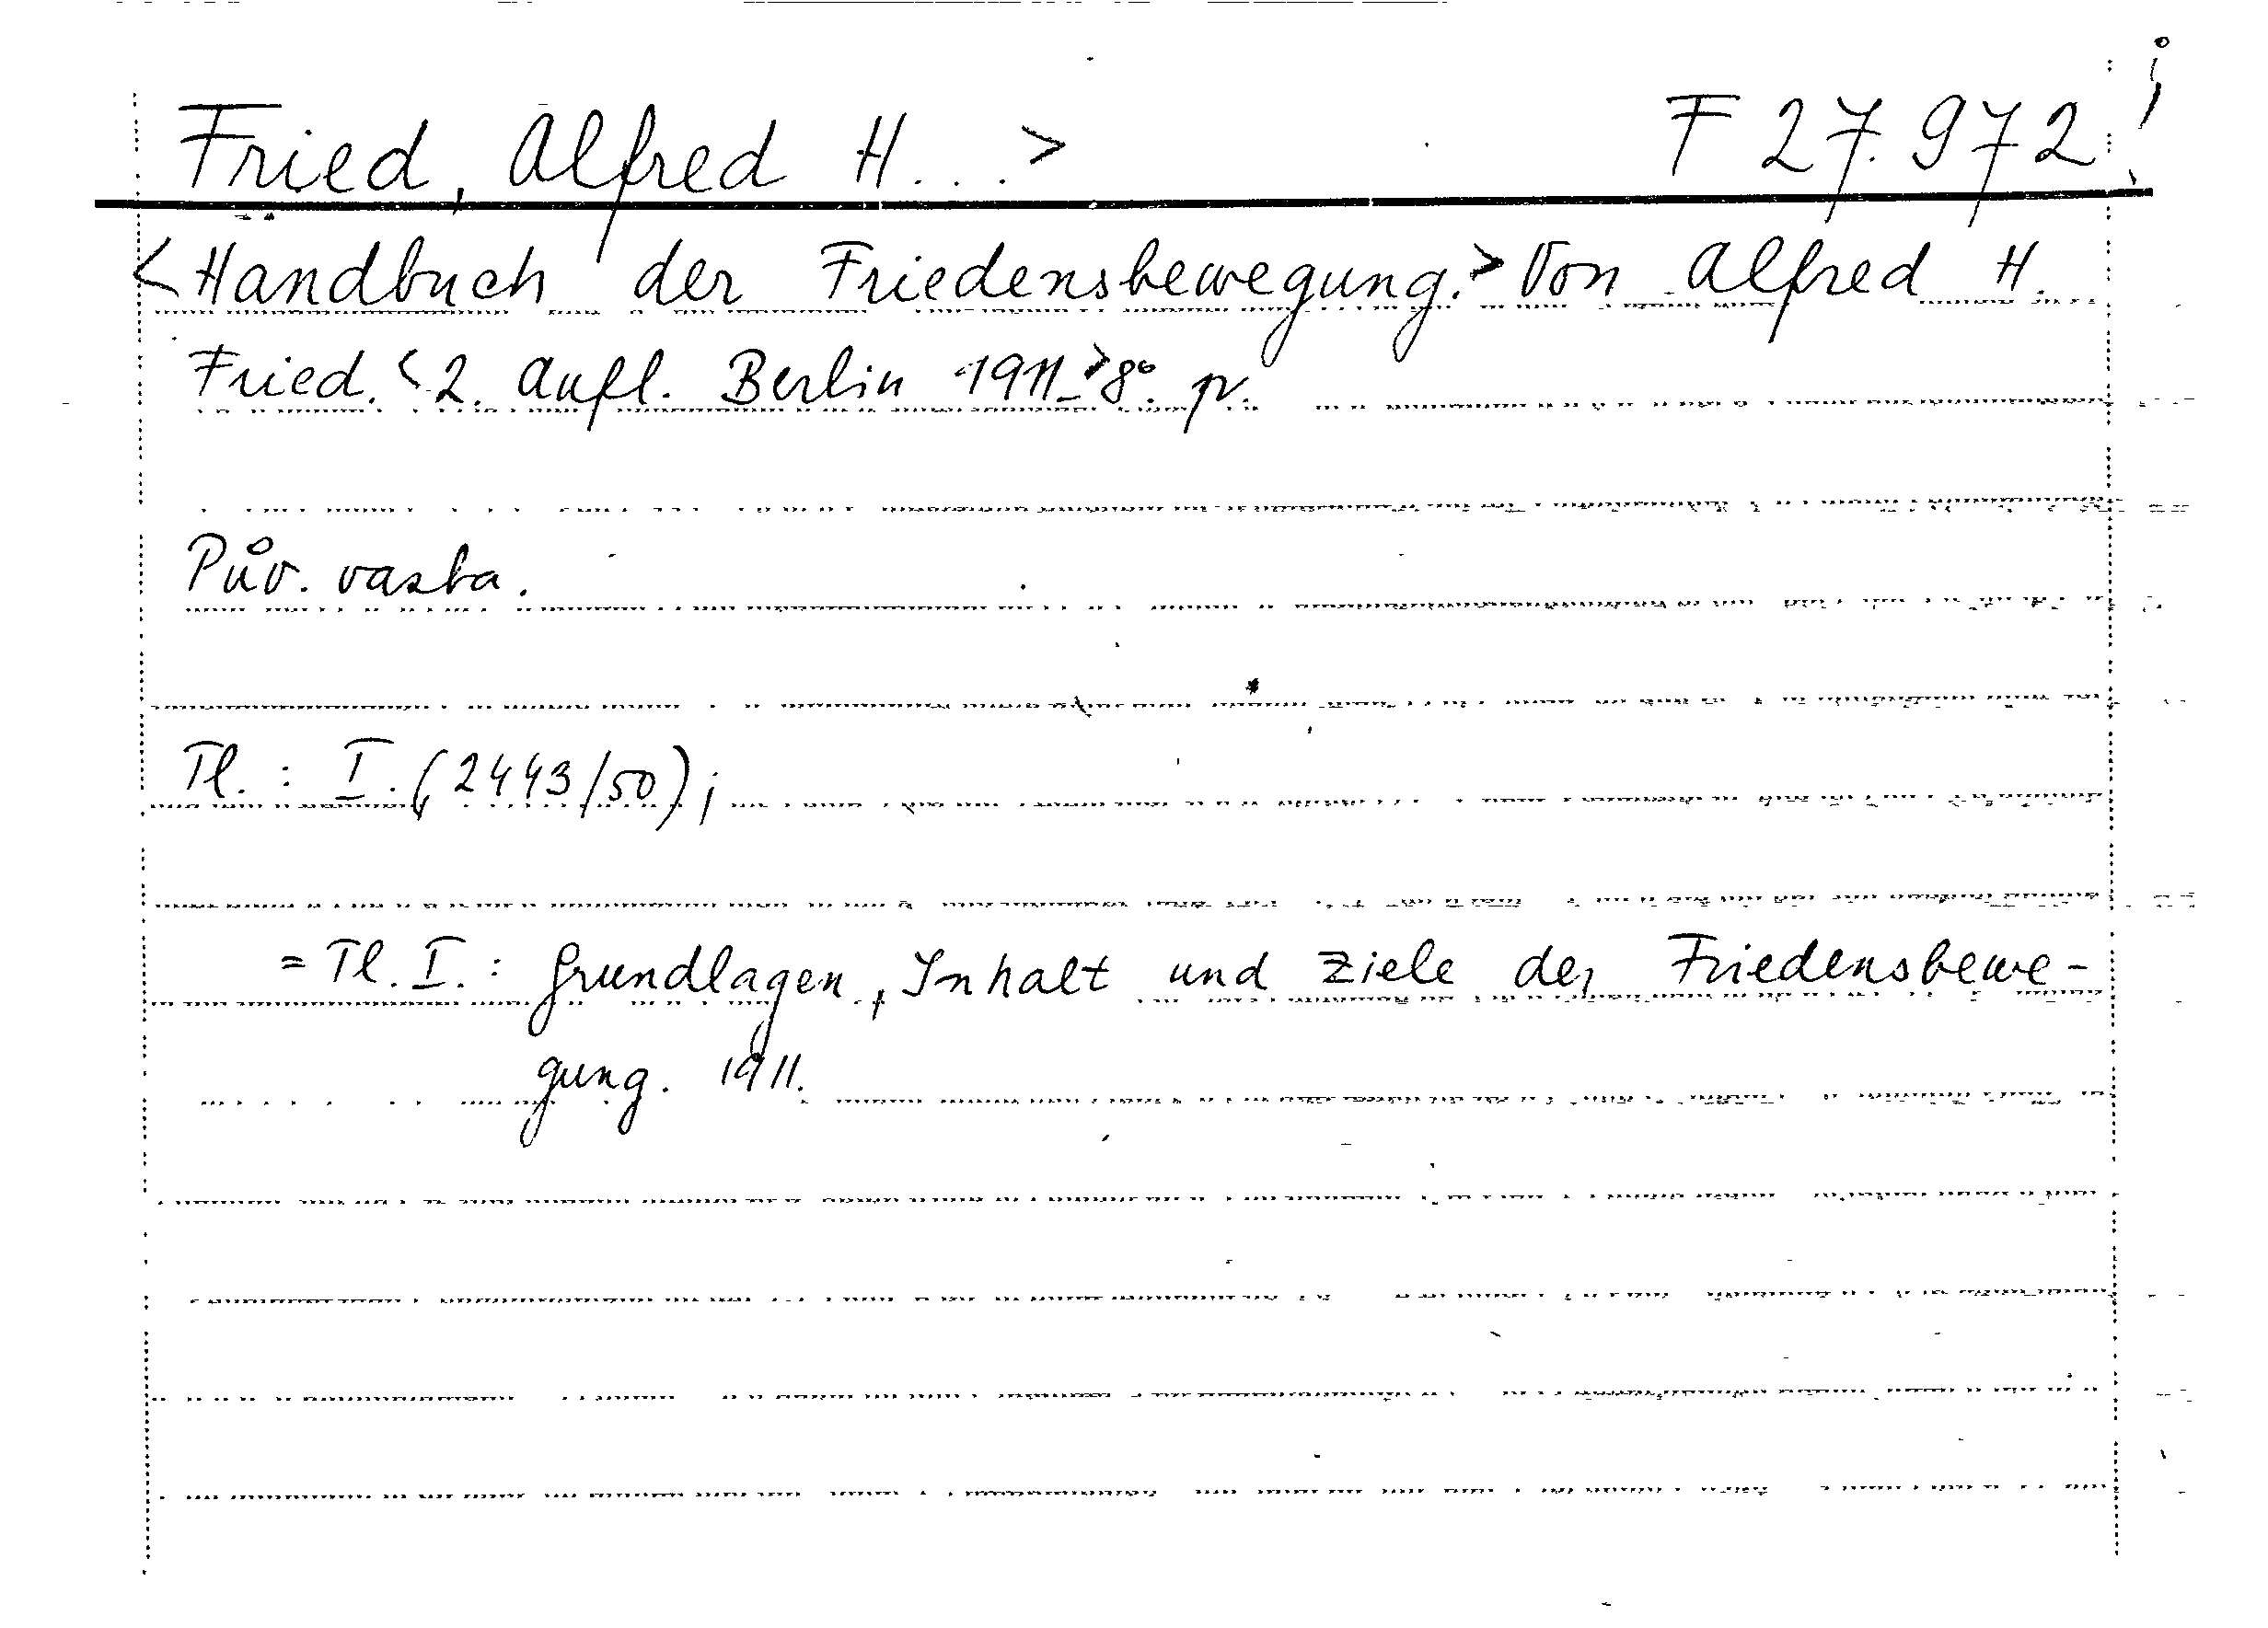 Fried, Alfred H...> F 27.972
<Handbuch der Friedensbewegung.> Von Alfred H.
Fried. <2. Aufl. Berlin 1911-> 8°. pv.
Pův. vazba.
Tl.: I. (2443/50);
= Tl. I.: Grundlagen, Inhalt und Ziele der Friedensbewe-
gung. 1911.